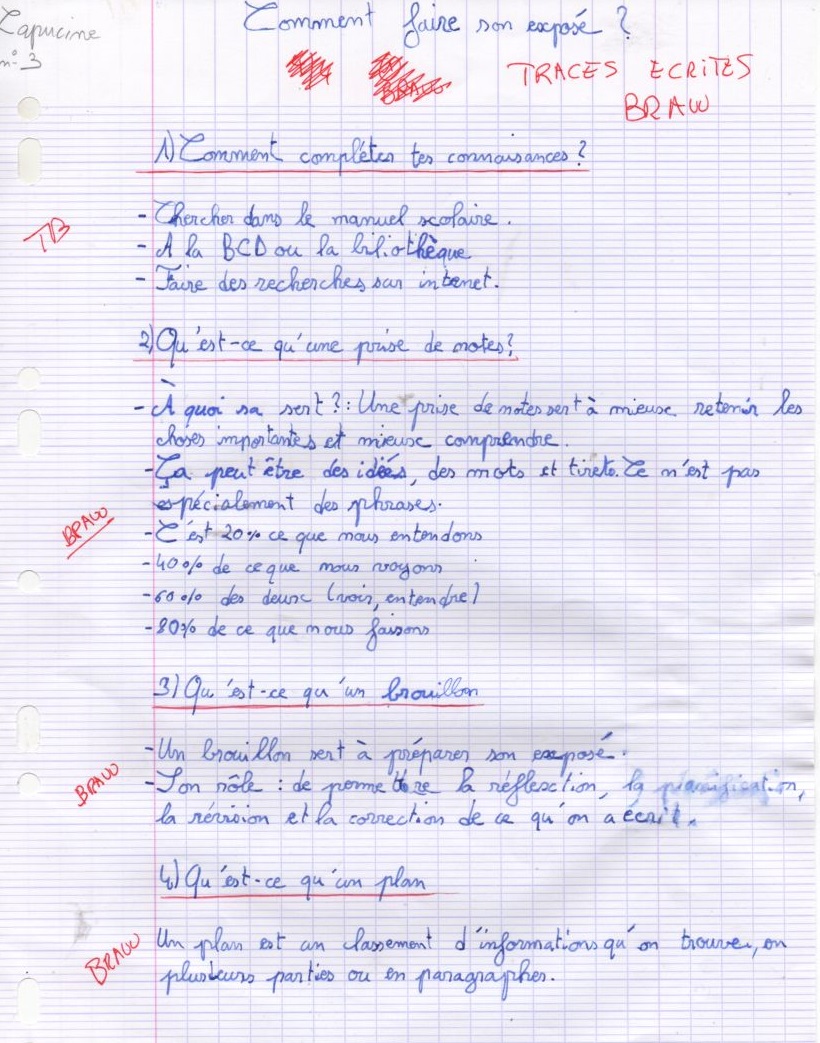 Capucine
n° 3
Comment faire son exposé ?
TRACES ECRITES
BRAVO
1) Comment complétes tes connaisances ?
TB
- Chercher dans le manuel scolaire.
- A la BCD ou la biliothèque
- Faire des recherches sur intenet.
2) Qu'est-ce qu'une prise de notes ?
- À quoi sa sert ? : Une prise de notes sert à mieux retenir les
choses importantes et mieux comprendre.
- Ça peut être des idées, des mots et tirets. Ce n'est pas
espécialement des phrases.
BRAVO
- C'est 20% ce que nous entendons
- 40% de ce que nous voyons
- 60% des deux (voir, entendre)
- 80% de ce que nous faisons
3) Qu'est-ce qu'un brouillon
- Un brouillon sert à préparer son exposé.
BRAVO
- Son rôle : de permettre la réflexction, la planification,
la révision et la correction de ce qu'on a écrit.
4) Qu'est-ce qu'un plan
BRAVO
Un plan est un classement d'informations qu'on trouve, en
plusteurs parties ou en paragraphes.